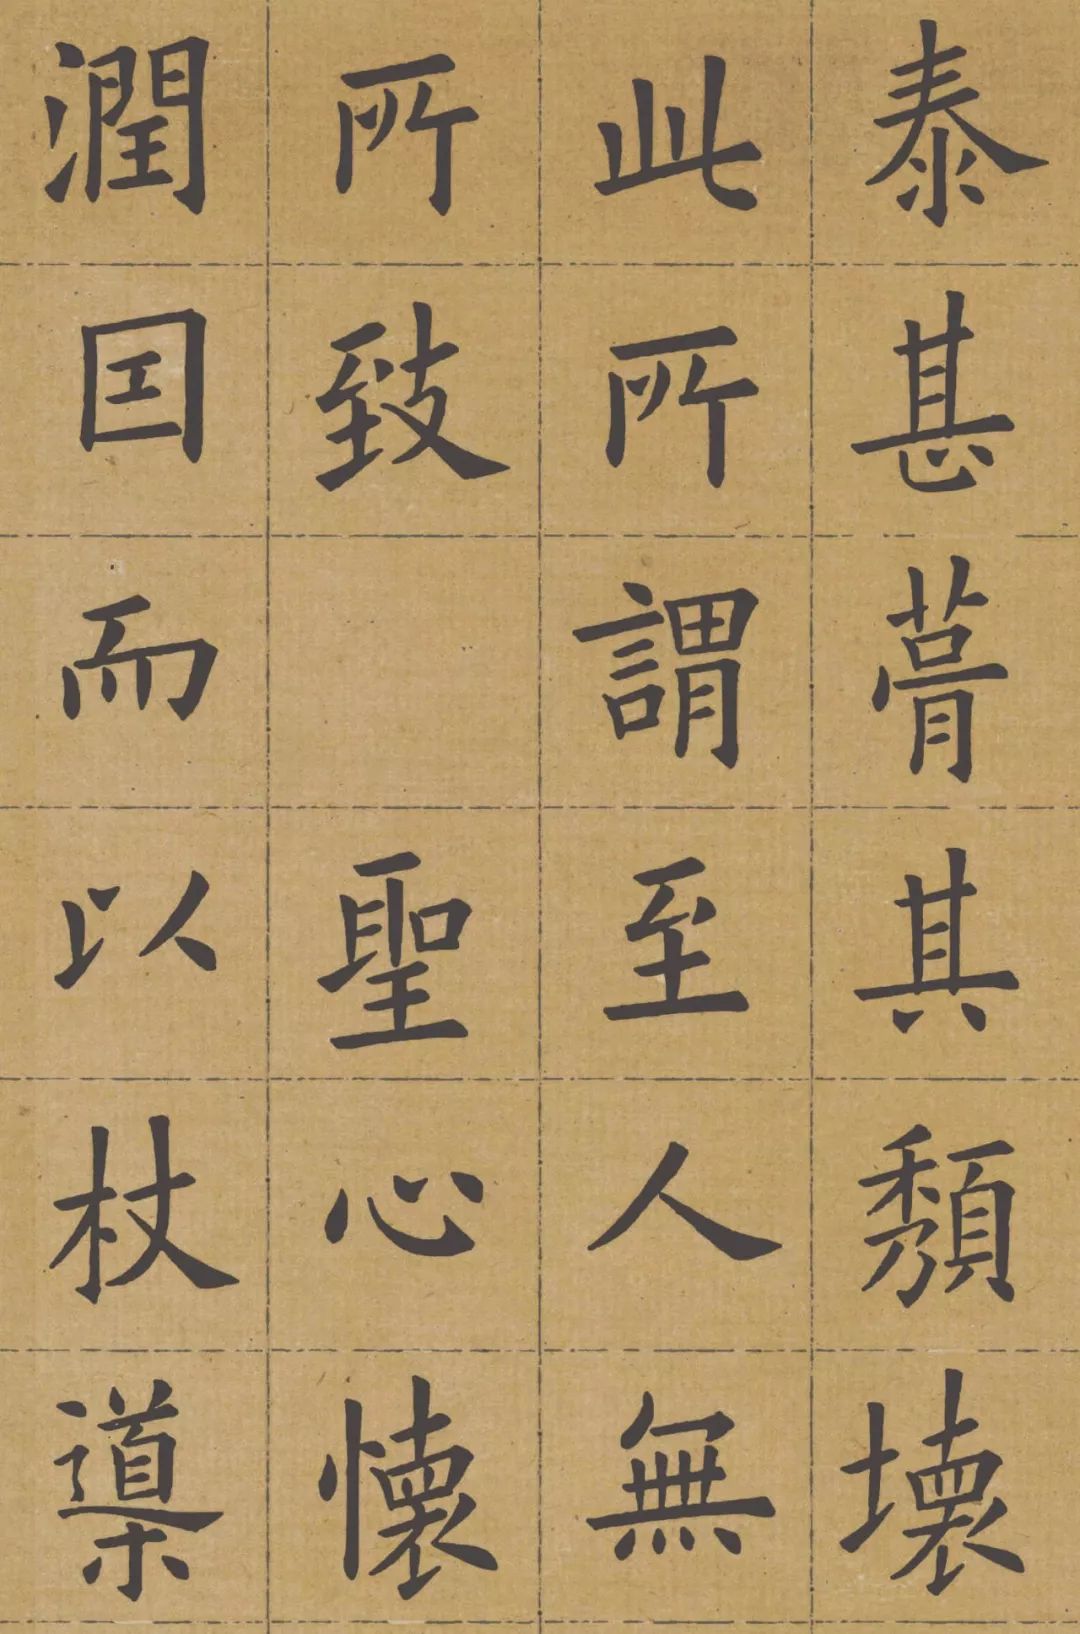 泰甚葺其頽壞
此所謂至人無
所致聖心懷
潤因而以杖導